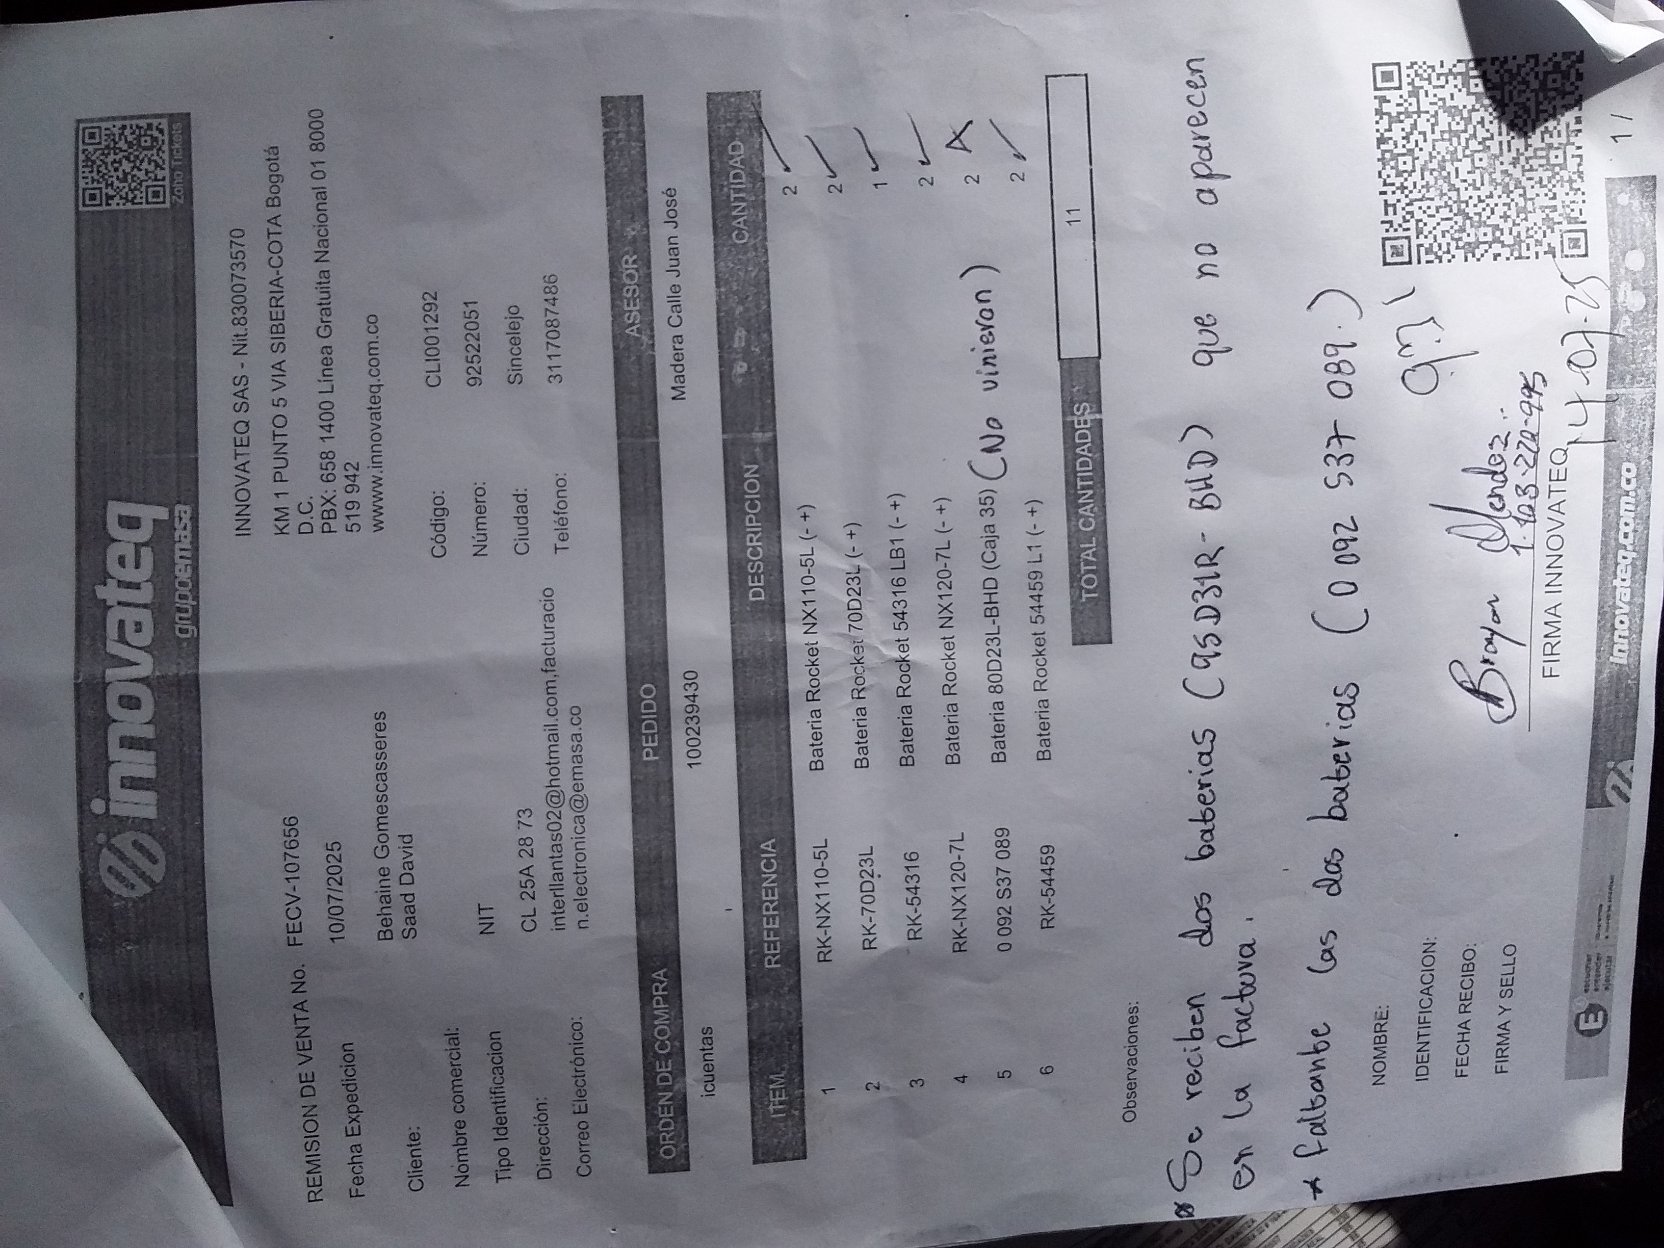 innovateq
grupoemasa
Zoho Tickets
INNOVATEQ SAS - Nit.830073570
KM 1 PUNTO 5 VIA SIBERIA-COTA Bogotá
D.C.
PBX: 658 1400 Línea Gratuita Nacional 01 8000
519 942
www.innovateq.com.co
REMISION DE VENTA No. FECV-107656
Fecha Expedicion 10/07/2025
Cliente: Behaine Gomescasseres
Saad David
Código: CLI001292
Nombre comercial:
Número: 92522051
Tipo Identificacion NIT
Ciudad: Sincelejo
Dirección: CL 25A 28 73
Teléfono: 3117087486
Correo Electrónico: interllantas02@hotmail.com,facturacio
n.electronica@emasa.co
ORDEN DE COMPRA PEDIDO ASESOR
icuentas 100239430 Madera Calle Juan José
ITEM. REFERENCIA DESCRIPCION CANTIDAD
1 RK-NX110-5L Bateria Rocket NX110-5L (- +) 2 ✓
2 RK-70D23L Bateria Rocket 70D23L (- +) 2 ✓
3 RK-54316 Bateria Rocket 54316 LB1 (- +) 1 ✓
4 RK-NX120-7L Bateria Rocket NX120-7L (- +) 2 ✓
5 0 092 S37 089 Bateria 80D23L-BHD (Caja 35) (No vinieron) 2 X
6 RK-54459 Bateria Rocket 54459 L1 (- +) 2 ✓
TOTAL CANTIDADES 11
Observaciones:
* Se reciben dos baterias (95D31R - BHD) que no aparecen
en la factura.
* faltante las dos baterias (0 092 S37 089.)
NOMBRE:
IDENTIFICACION:
FECHA RECIBO:
FIRMA Y SELLO
Brayan Mendoz..
FIRMA INNOVATEQ
14-07-25
escuchar
aprender
ejecutar
innovateq.com.co
1 /